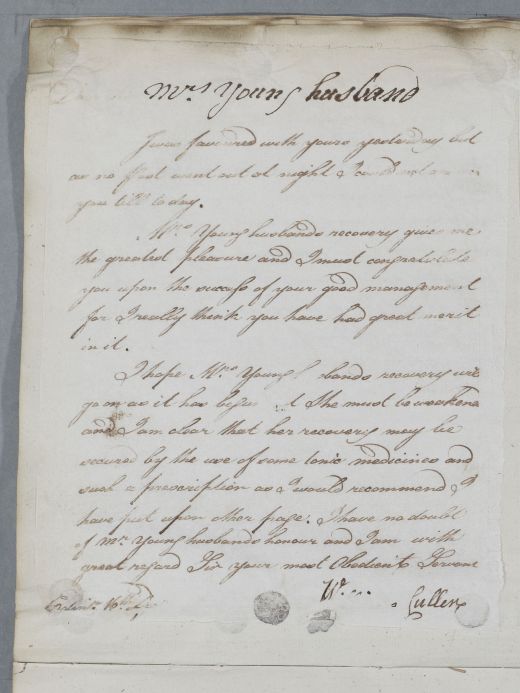 Mrs Younghusband
I was favoured with yours yesterday but
as no Post went out at night I could not
you till to day.
Mrs Younghusbands recovery gives me
the greatest pleasure and I must congratulate
you upon the success of your good management
for I really think you have had great merit
in it.
I hope Mrs Young bands recovery will
go on as it has begun She must be weakened
and I am clear that her recovery may be
secured by the use of some tonic medicines and
such a prescription as I would recommend I
have put upon other page. I have no doubt
of Mr Younghusbands honour and I am with
great regard Sir your most Obedient Servant
Edinr 16th
Wm Cullen